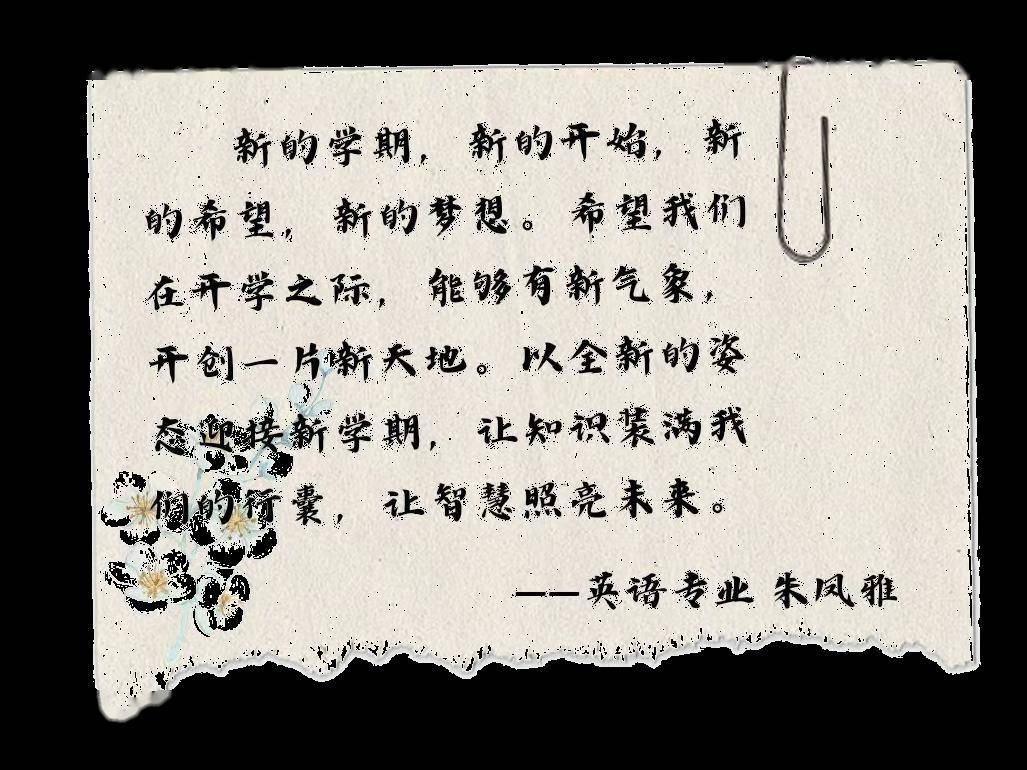 新的学期，新的开始，新
的希望，新的梦想。希望我们
在开学之际，能够有新气象，
开创一片新天地。以全新的姿
态迎接新学期，让知识装满我
们的行囊，让智慧照亮未来。
——英语专业 朱凤雅